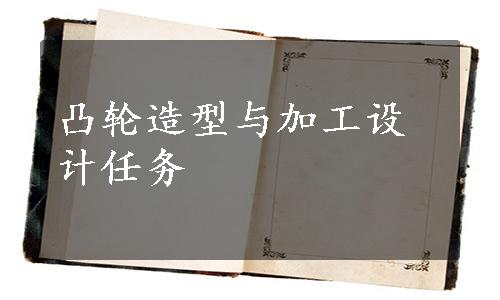 凸轮造型与加工设
计任务